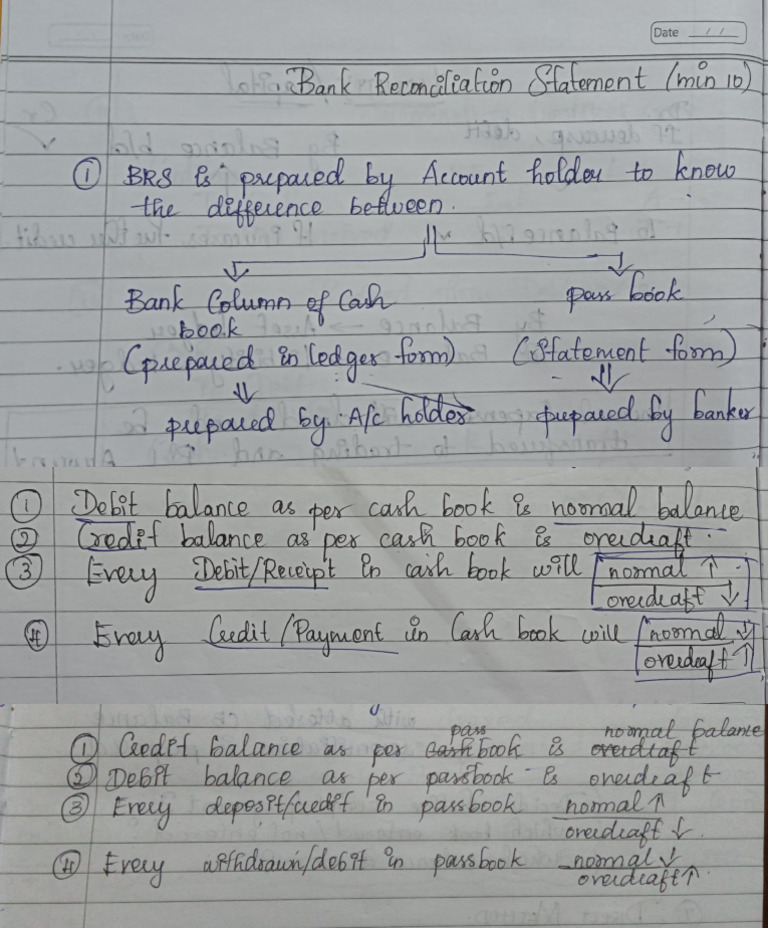 Date / /
Bank Reconciliation Statement (min 10)
① BRS is prepared by Account holder to know
the difference between.
Bank Column of Cash book
pass book
(prepared in ledger form)
(Statement form)
prepared by A/c holder
prepared by banker
① Debit balance as per cash book is normal balance
② Credit balance as per cash book is overdraft.
③ Every Debit/Receipt in cash book will normal ↑
overdraft ↓
④ Every Credit/Payment in Cash book will normal ↓
overdraft ↑
① Credit balance as per cash pass book is overdraft normal balance
② Debit balance as per passbook is overdraft
③ Every deposit/credit in passbook normal ↑
overdraft ↓.
④ Every withdrawn/debit in passbook normal ↓
overdraft ↑